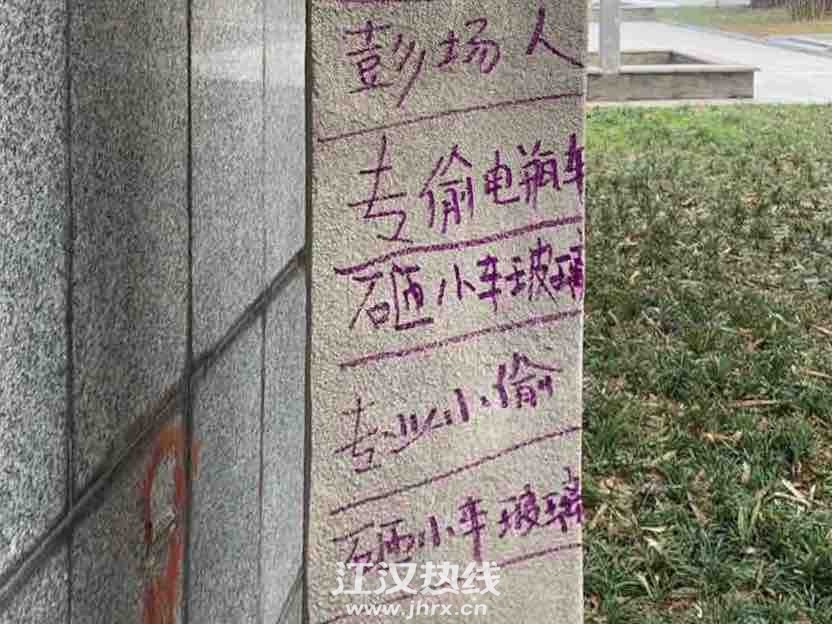 彭场人
专偷电瓶车
砸小车玻璃
专业小偷
砸小车玻璃
江汉热线
www.jhrx.cn